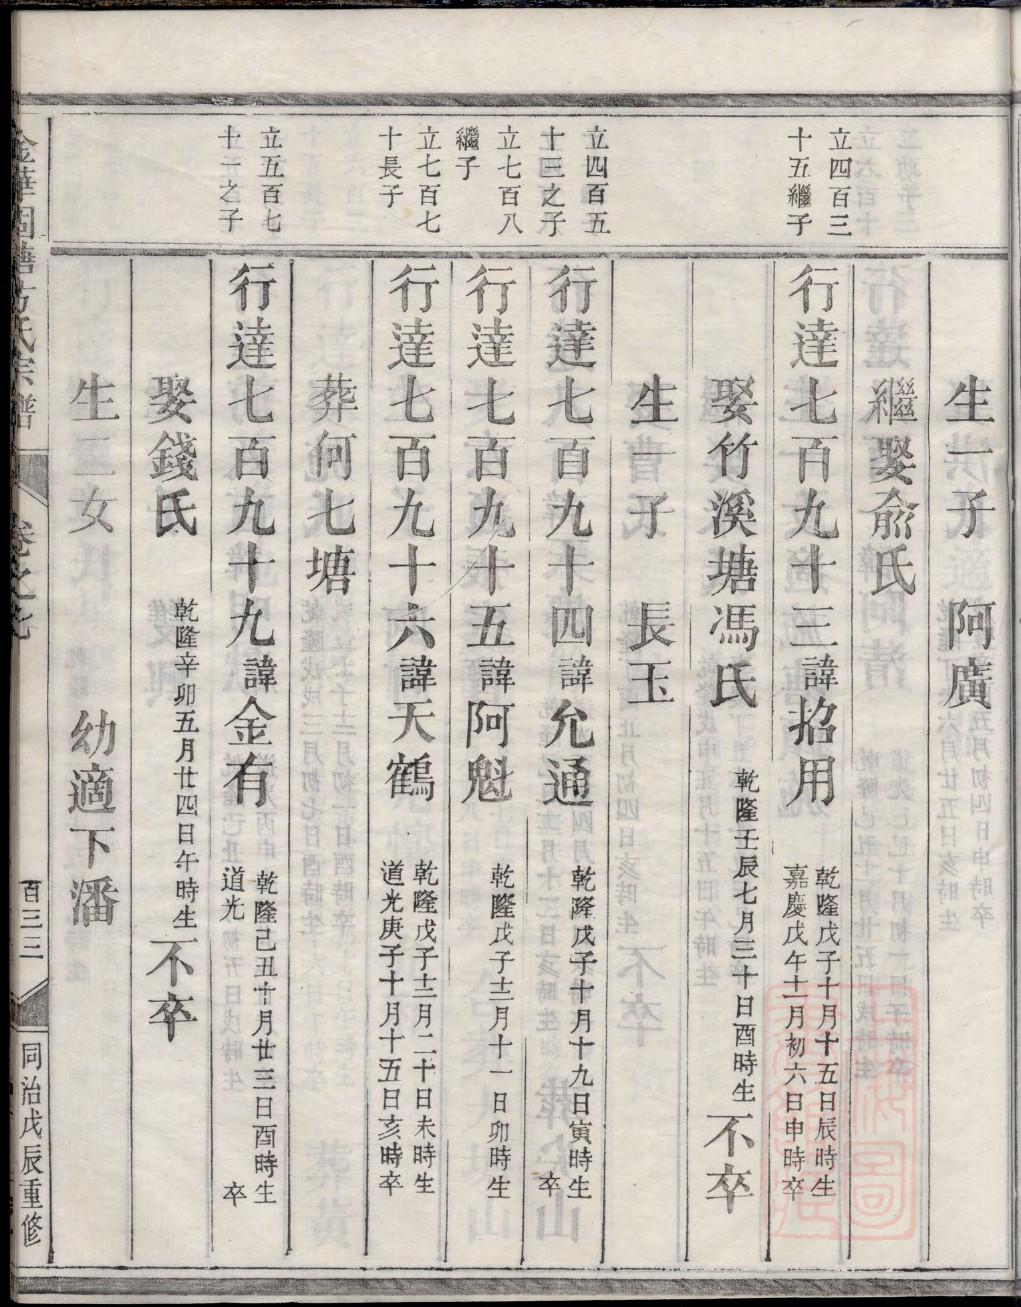 生一子　阿廣
繼娶俞氏
立四百三
十五繼子
行達七百九十三諱招用
乾隆戊子十月十五日辰時生
嘉慶戊午十一月初六日申時卒
娶竹溪塘馮氏
乾隆壬辰七月三十日酉時生
不卒
生一子　長玉
立四百五
十三之子
行達七百九十四諱允通
乾隆戊子十月十九日寅時生
卒
立七百八
繼子
行達七百九十五諱阿魁
乾隆戊子十二月十一日卯時生
立七百七
十長子
行達七百九十六諱天鶴
乾隆戊子十二月二十日未時生
道光庚子十月十五日亥時卒
葬何七塘
立五百七
十一之子
行達七百九十九諱金有
乾隆己丑十月廿三日酉時生
道光　卒
娶錢氏
乾隆辛卯五月廿四日午時生
不卒
生二女　幼適下潘
金華　方氏宗譜
卷之
百三三
同治戊辰重修